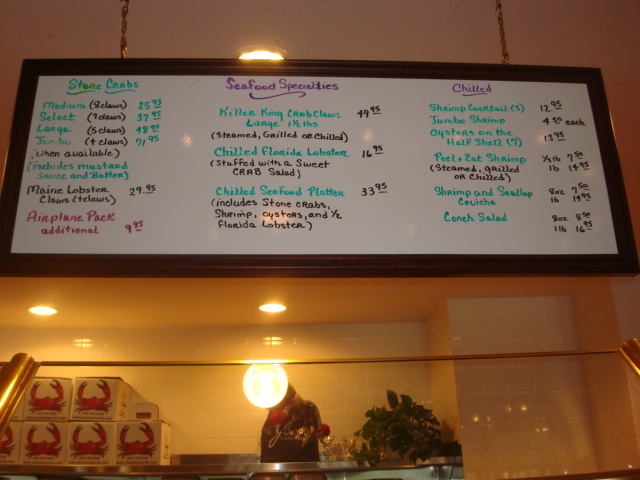 Stone Crabs
Medium (8 claws) 25.95
Select (7 claws) 37.95
Large (5 claws) 48.95
Jumbo (4 claws) 71.95
(when available)
(includes mustard
Sauce and Butter)
Maine Lobster 29.95
Claws (4 claws)
Airplane Pack
additional 9.95
Seafood Specialties
Killer King Crab Claws 49.95
Large 1½ lbs
(Steamed, Grilled or Chilled)
Chilled Florida Lobster 16.95
(Stuffed with a Sweet
CRAB Salad)
Chilled Seafood Platter 33.95
(includes Stone Crabs,
Shrimp, oysters, and ½
Florida Lobster)
Chilled
Shrimp Cocktail (5) 12.95
Jumbo Shrimp 4.50 each
Oysters on the
Half Shell (7) 13.95
Peel + Eat Shrimp ½ lb 7.50
(Steamed, grilled lb 14.95
or Chilled)
Shrimp and Scallop 8oz 7.50
Ceviche lb 14.95
Conch Salad 8oz 8.50
1lb 16.95